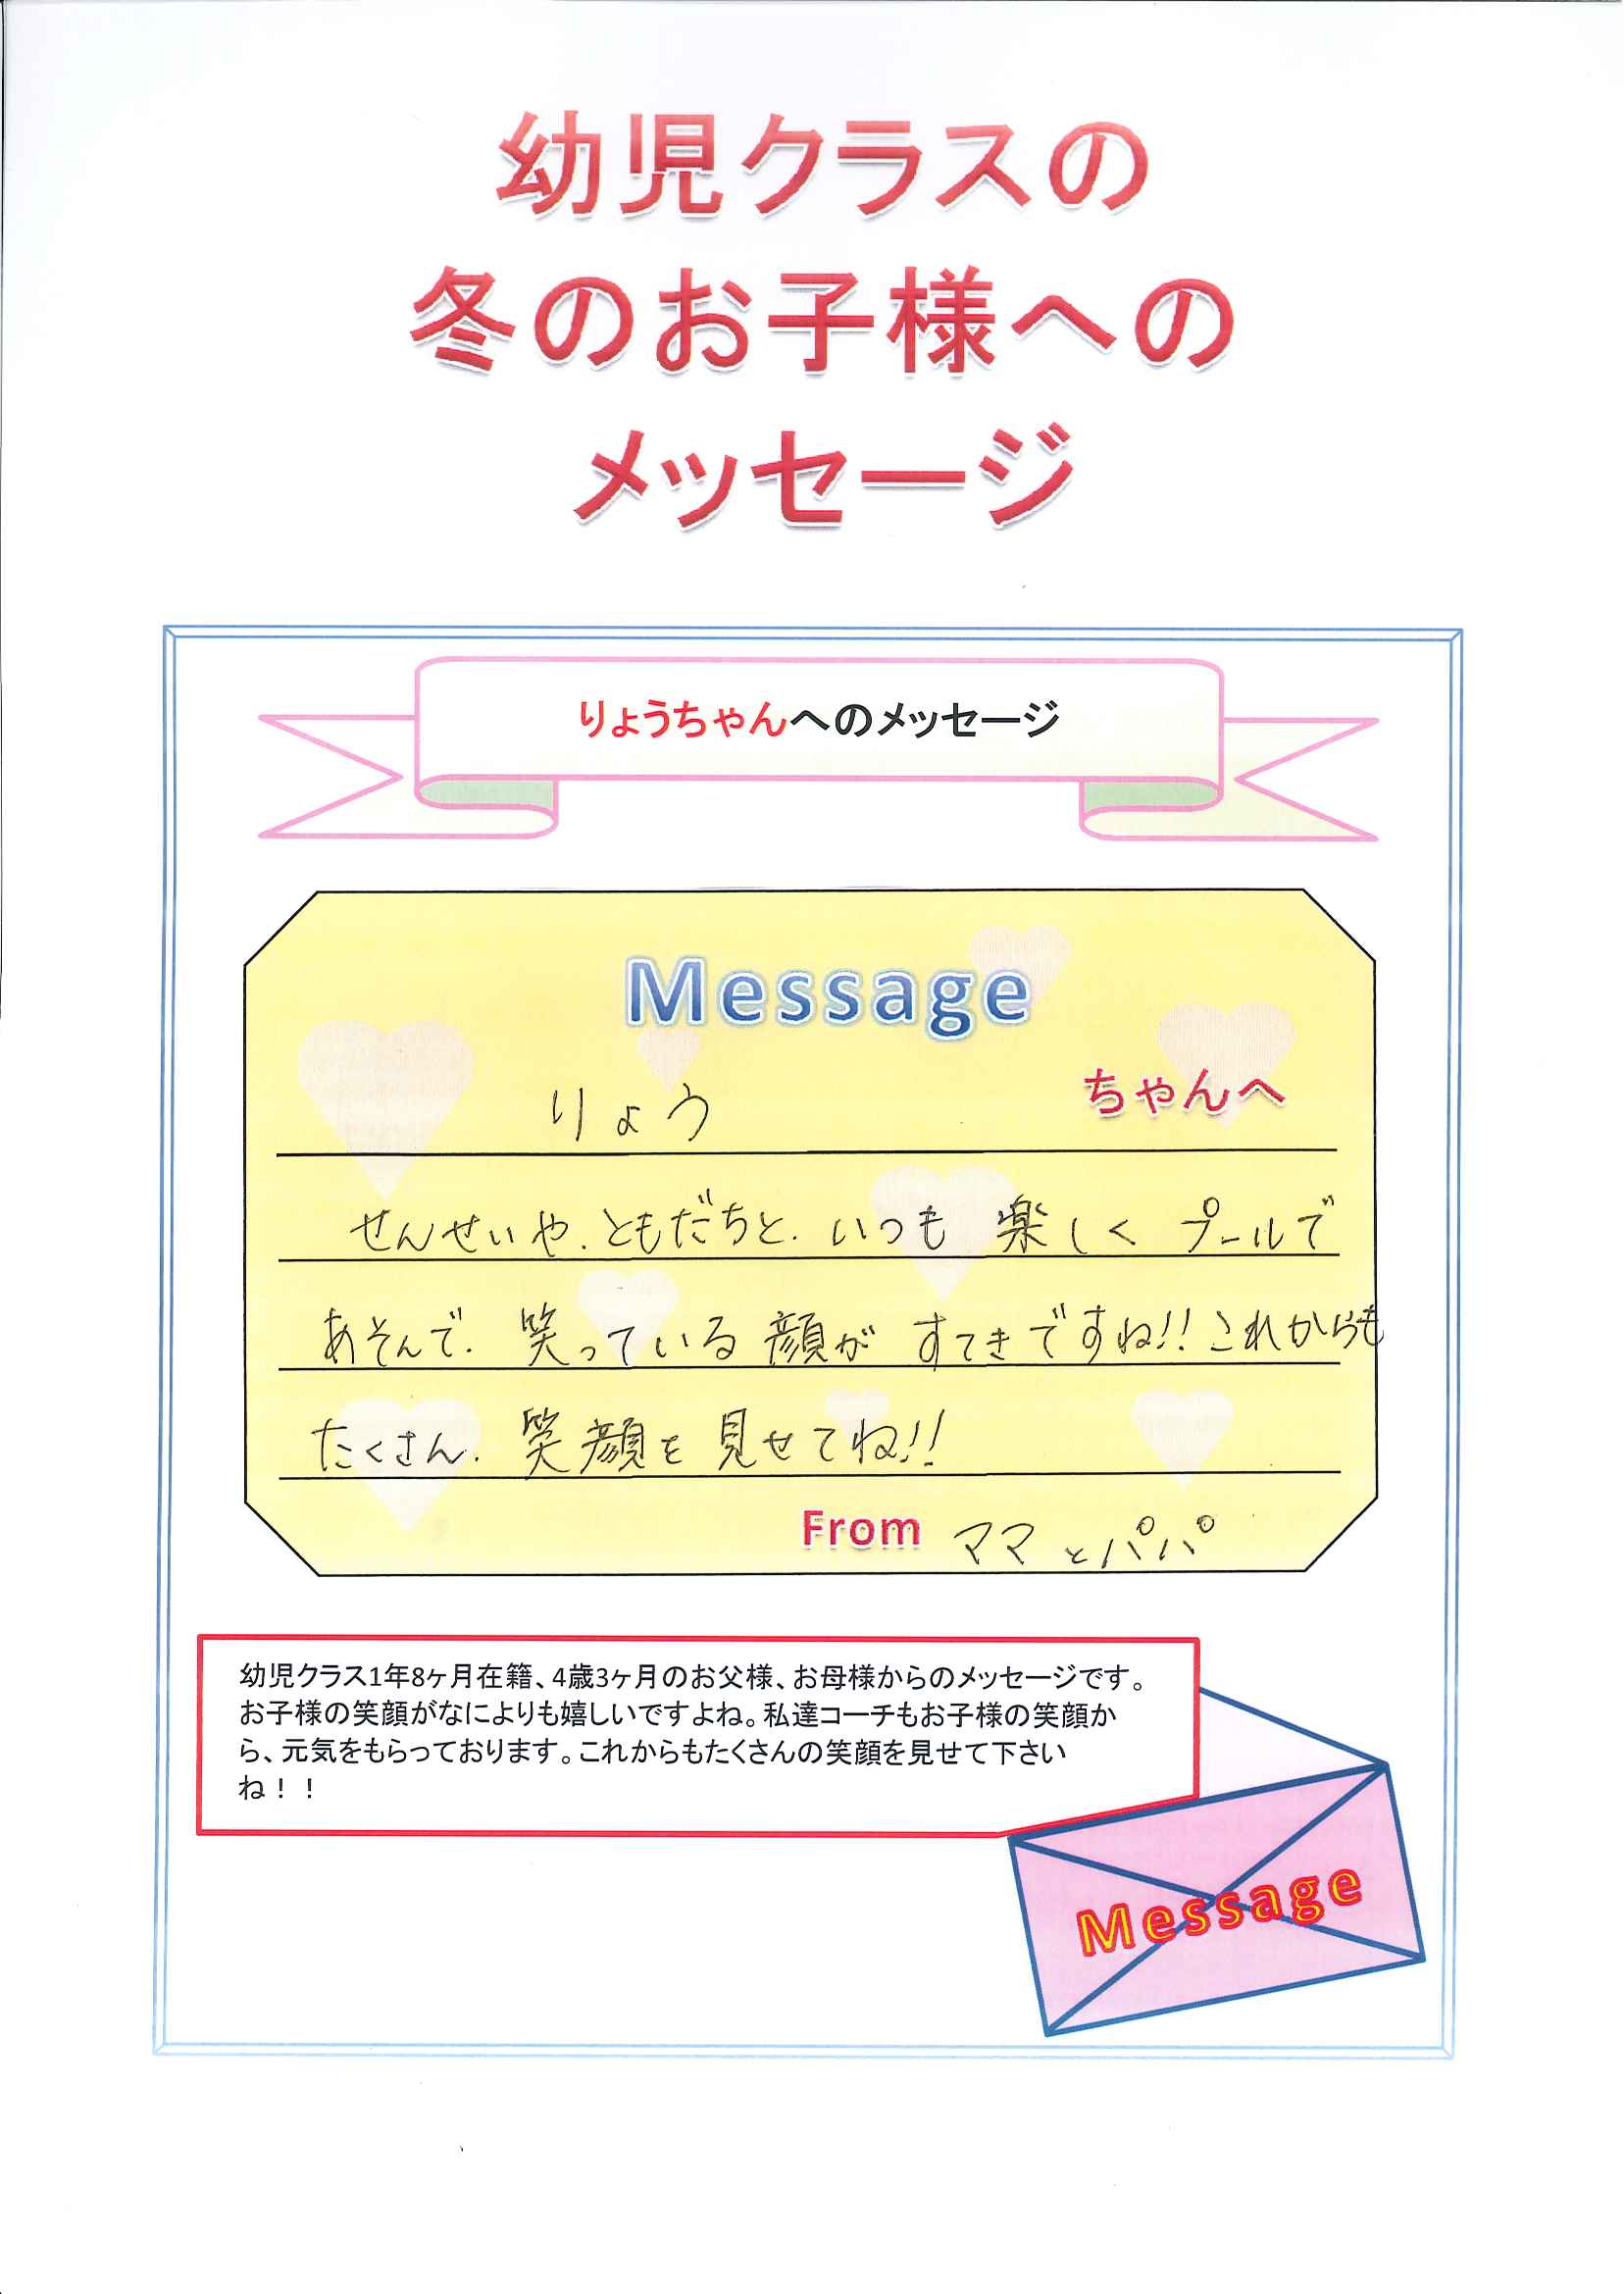 幼児クラスの
冬のお子様への
メッセージ
りょうちゃんへのメッセージ
Message
りょう ちゃんへ
せんせいや、ともだちと、いつも 楽しく プールで
あそんで、笑っている 顔が すてきですね!!これからも
たくさん、笑顔を 見せてね!!
From ママとパパ
幼児クラス1年8ヶ月在籍、4歳3ヶ月のお父様、お母様からのメッセージです。
お子様の笑顔がなによりも嬉しいですよね。私達コーチもお子様の笑顔か
ら、元気をもらっております。これからもたくさんの笑顔を見せて下さい
ね！！
Message